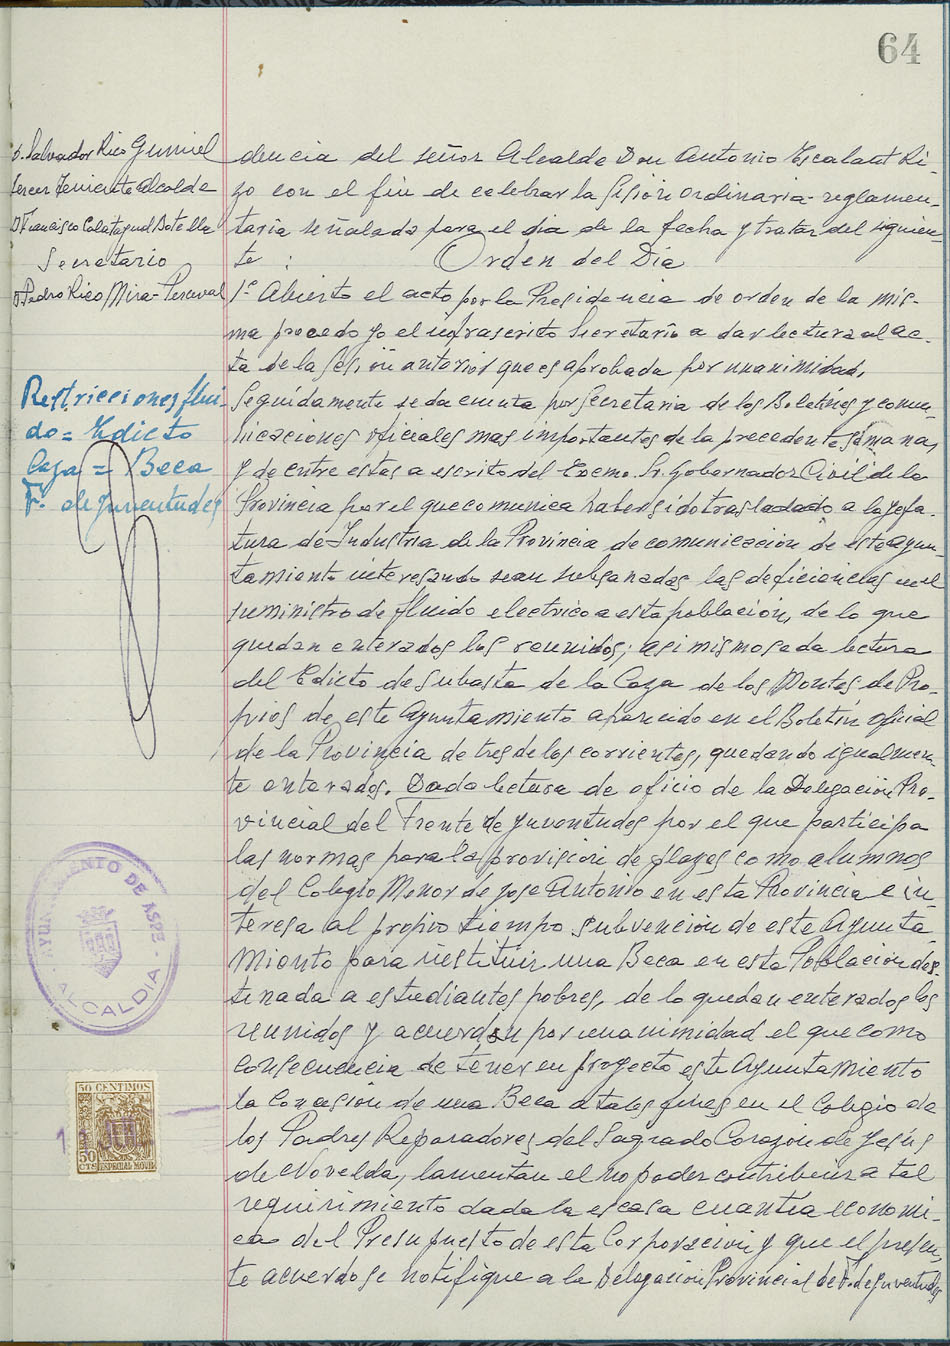 64
D. Salvador Rico Gumiel
tercer Teniente Alcalde
D Francisco Calatayud Botella
Secretario
D Pedro Rico Mira-Perceval
Restricciones flui-
do = Edicto
Caza = Beca
F. de Juventudes
AYUNTAMIENTO DE ASPE
ALCALDIA
50 CENTIMOS
50
CTS
ESPECIAL MOVIL
dencia del señor Alcalde Don Antonio Escalant Ri-
zo con el fin de celebrar la sesión ordinaria reglamen-
taria señalada para el dia de la fecha y tratar del siguien-
te : Orden del Dia
1º Abierto el acto por la Presidencia de orden de la mis-
ma procedo yo el infrascrito Secretario a dar lectura al ac-
ta de la sesión anterior que es aprobada por unanimidad.
Seguidamente se da cuenta por Secretaria de los Boletines y comu-
nicaciones oficiales mas importantes de la precedente semana,
y de entre estas a escrito del Excmo. Sr. Gobernador Civil de la
Provincia por el que comunica haber sido trasladado a la Jefa-
tura de Industria de la Provincia de comunicación de este ayun-
tamiento interesando sean subsanadas las deficiencias en el
suministro de fluido electrico a esta población, de lo que
quedan enterados los reunidos; asi mismo se da lectura
del Edicto de subasta de la Caza de los Montes de Pro-
pios de este Ayuntamiento aparecido en el Boletín oficial
de la Provincia de tres de los corrientes, quedando igualmen-
te enterados. Dada lectura de oficio de la Delegación Pro-
vincial del Frente de Juventudes por el que participa
las normas para la provisión de plazas como alumnos
del Colegio Menor de Jose Antonio en esta Provincia e in-
teresa al propio tiempo subvención de este Ayunta
miento para instituir una Beca en esta Población des-
tinada a estudiantes pobres, de lo quedan enterados los
reunidos y acuerdan por unanimidad el que como
consecuencia de tener en proyecto este Ayuntamiento
la concesión de una Beca a tales fines en el Colegio de
los Padres Reparadores del Sagrado Corazón de Jesús
de Novelda, lamentan el no poder contribuir a tal
requirimiento dada la escasa cuantia economi-
ca del Presupuesto de esta Corporación y que el presen-
te acuerdo se notifique a la Delegación Provincial de F. de Juventudes